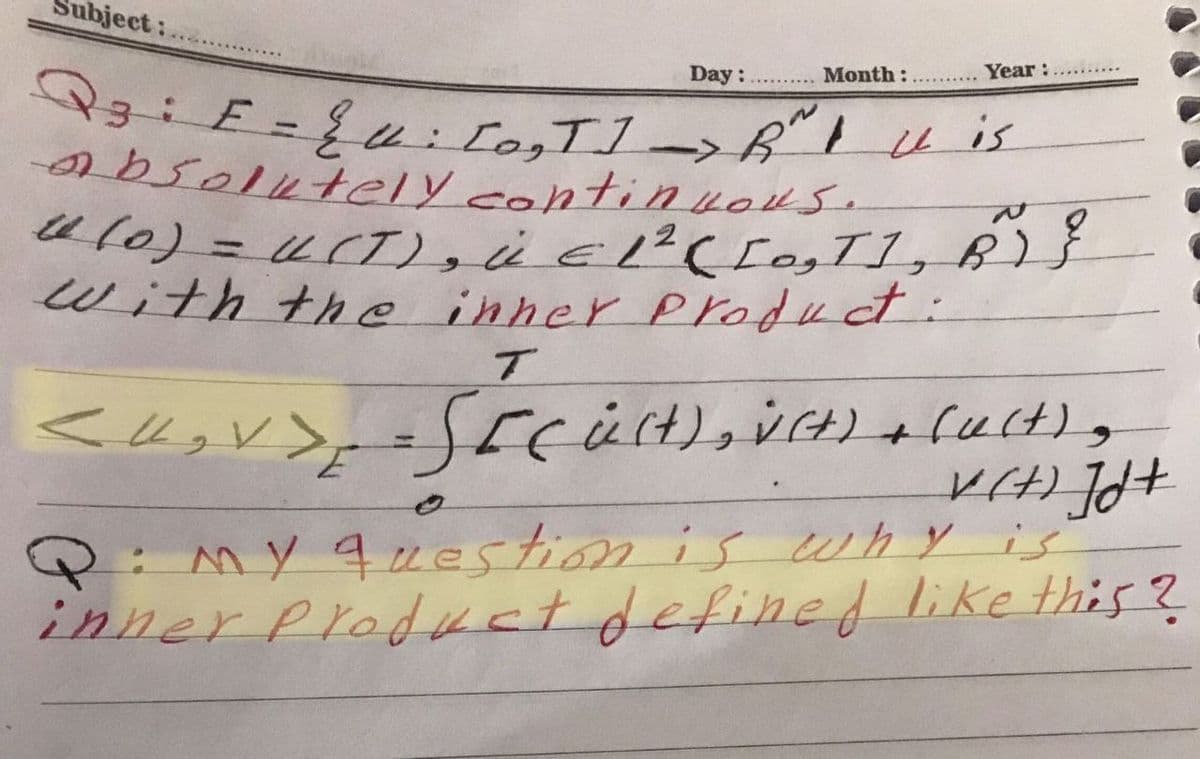 Subject :..............
Day :.......... Month :.......... Year :..........
Q3: E = { u : [0,T] -> R^N | u is
absolutely continuous.
u(0) = u(T), u̇ ∈ L²([0,T], R^N) }
with the inner product :
T
<u,v>_E = ∫ [(u̇(t), v̇(t) + (u(t),
0
v(t)]dt
Q: my question is why is
inner product defined like this?